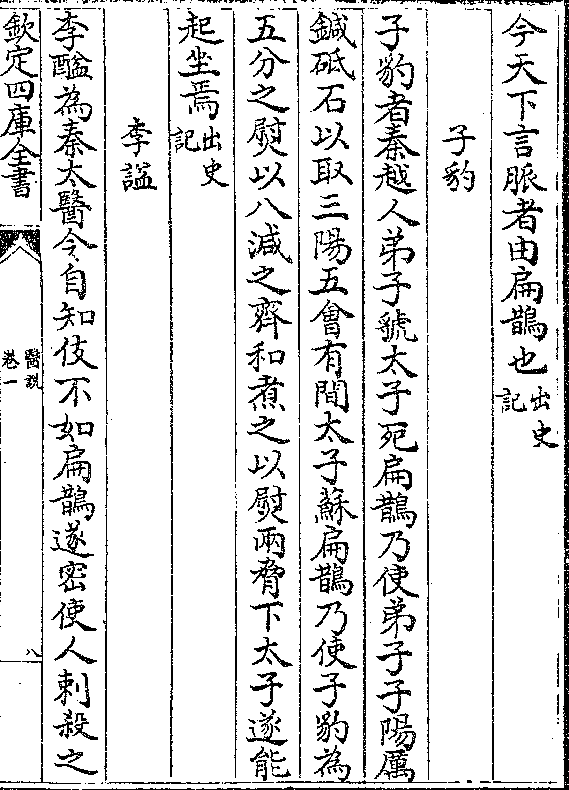 今天下言脈者由扁鵲也出史記
子豹
子豹者秦越人弟子虢太子死扁鵲乃使弟子子陽厲
鍼砥石以取三陽五會有間太子蘇扁鵲乃使子豹為
五分之熨以八減之齊和煮之以熨兩脅下太子遂能
起坐焉出史記
李謚
李醯為秦太醫令自知伎不如扁鵲遂密使人刺殺之
欽定四庫全書
醫說
卷一
八